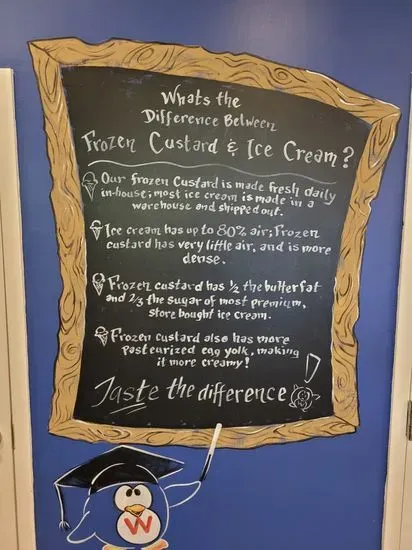 Whats the
Difference Between
Frozen Custard & Ice Cream?
Our frozen custard is made fresh daily
in-house; most ice cream is made in a
warehouse and shipped out.
Ice cream has up to 80% air; Frozen
custard has very little air, and is more
dense.
Frozen custard has 1/2 the butterfat
and 2/3 the sugar of most premium,
store bought ice cream.
Frozen custard also has more
pasteurized egg yolk, making
it more creamy!
Taste the difference!
W